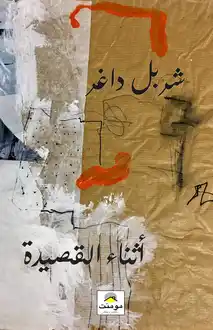 شربل داغر
أثناء القصيدة
مومنت